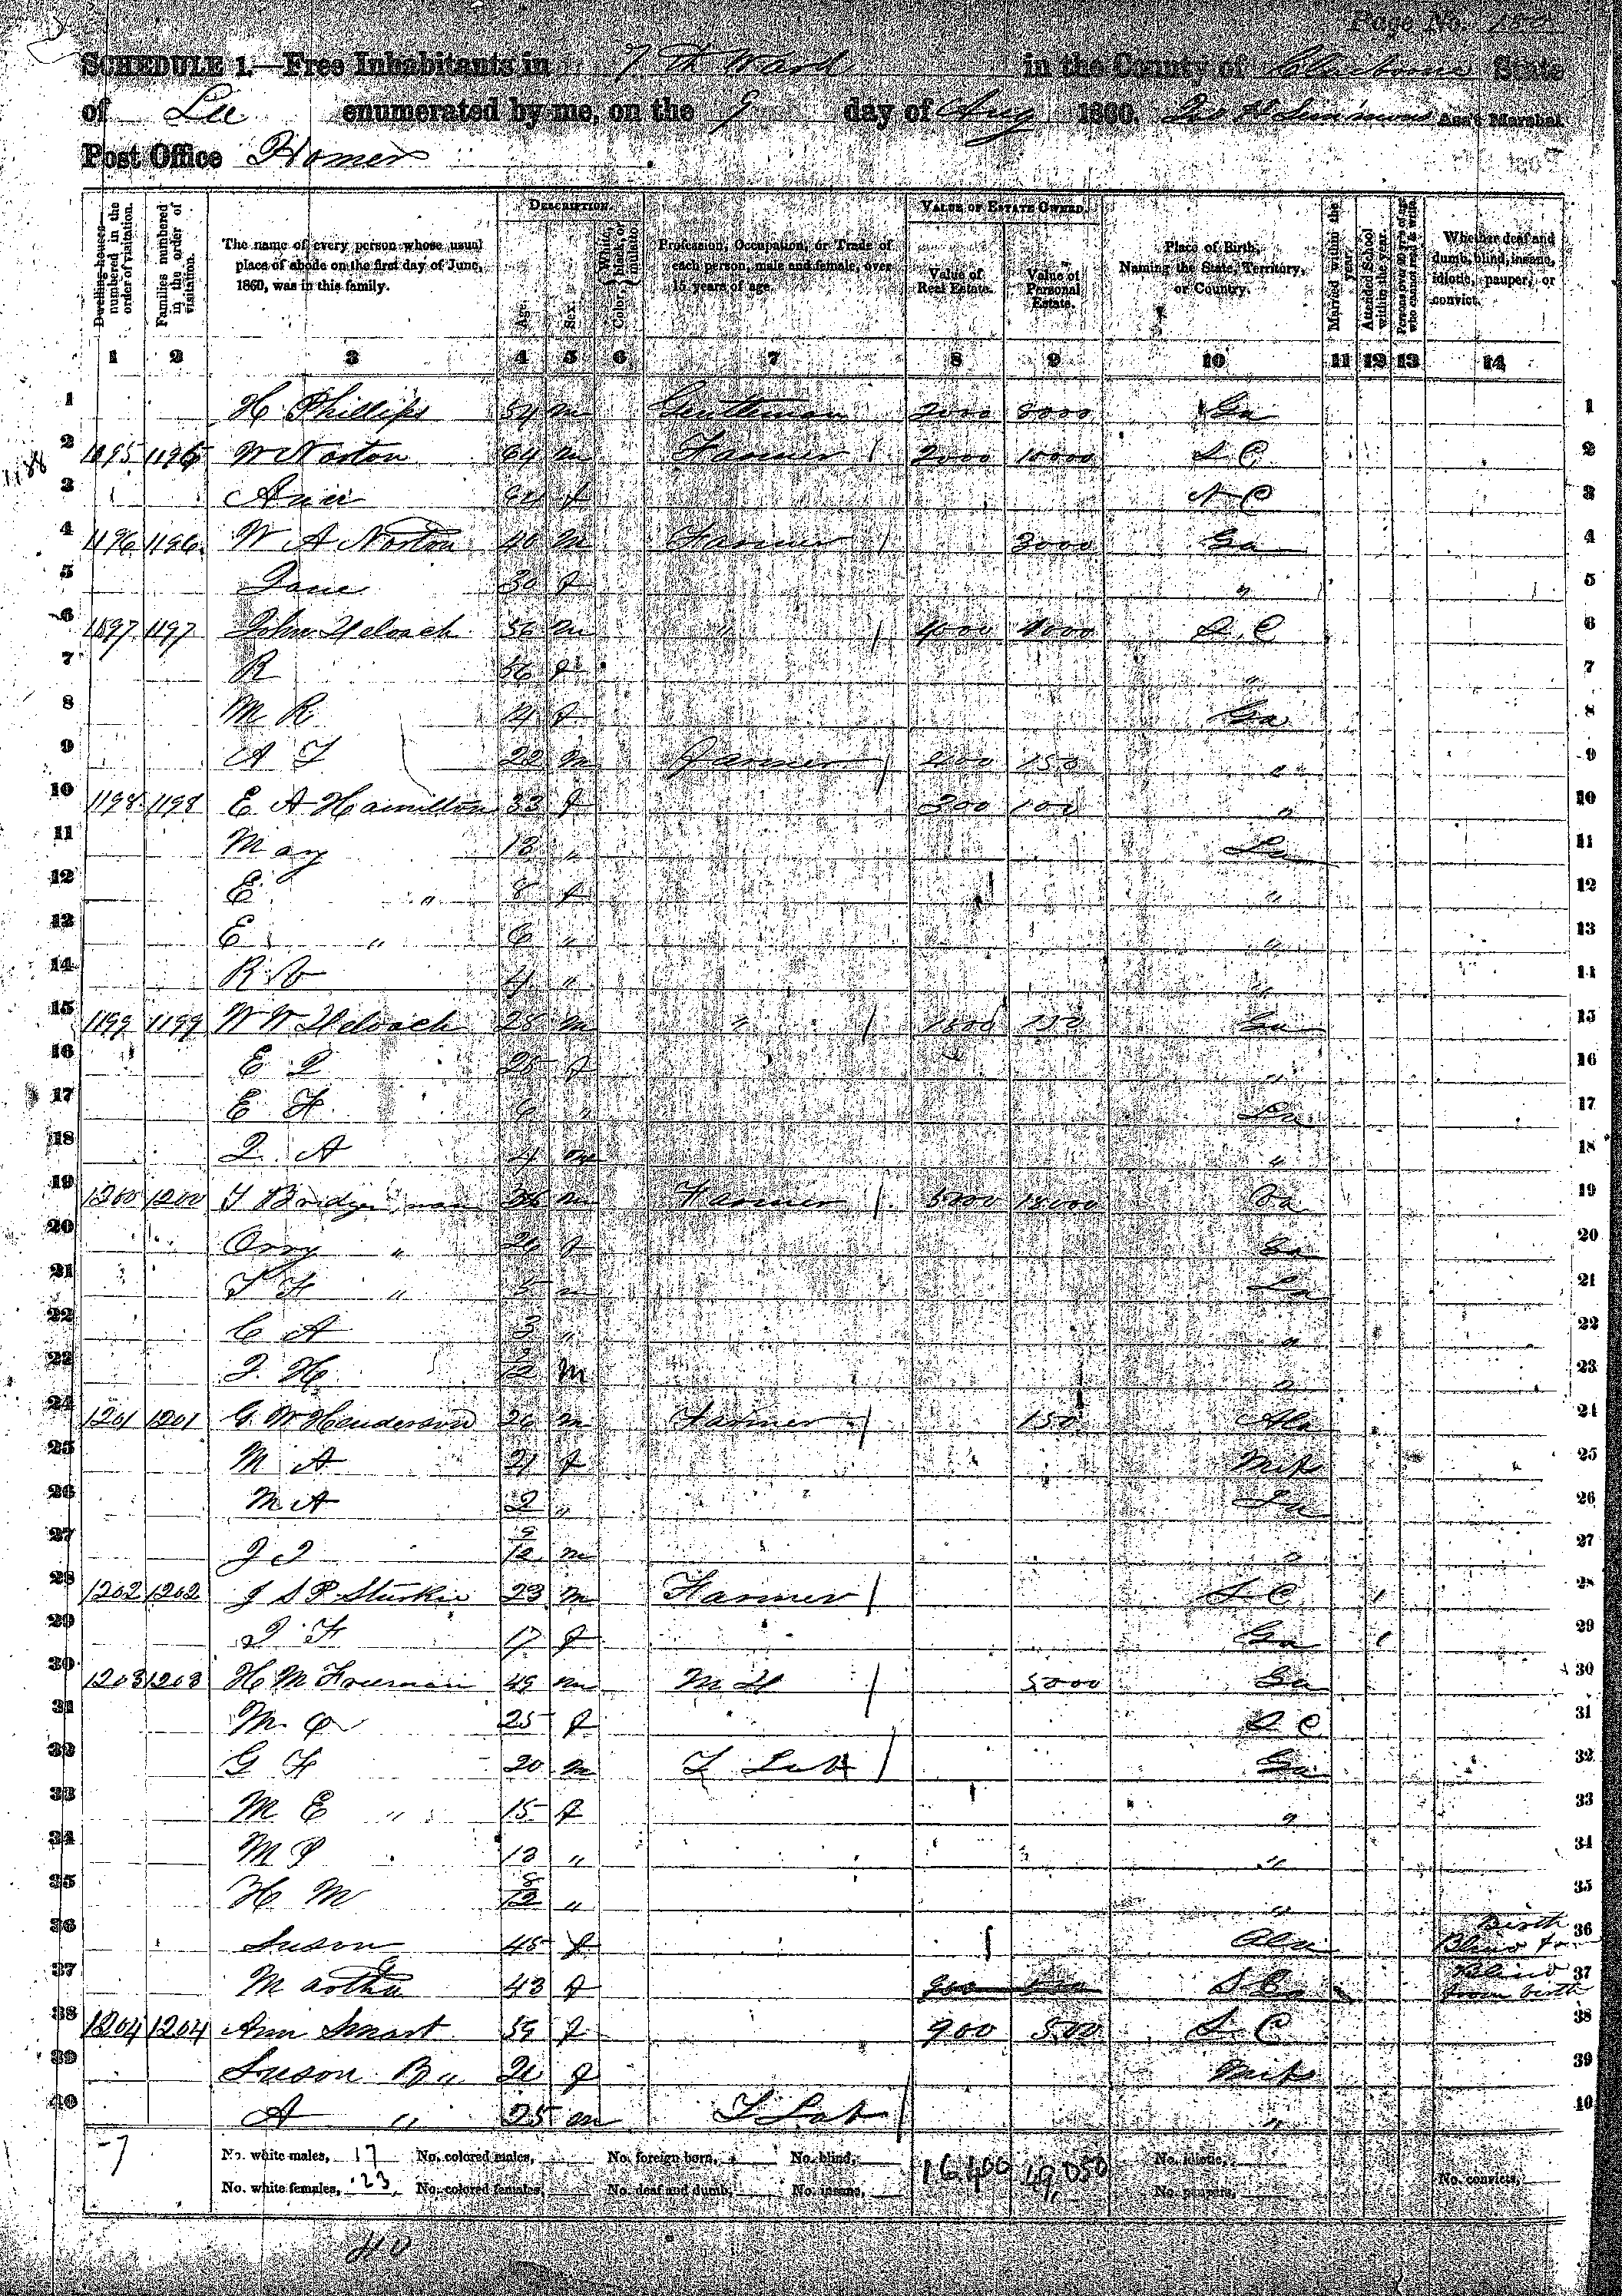 Page No.
SCHEDULE 1.—Free Inhabitants in 7th Ward in the County of Claiborne State
of La enumerated by me, on the 9 day of Aug 1860. Ass't Marshal.
Post Office Homer
DESCRIPTION. VALUE OF ESTATE OWNED.
Dwelling-houses numbered in the order of visitation. Families numbered in the order of visitation. The name of every person whose usual place of abode on the first day of June, 1860, was in this family. Age. Sex. Color, {White, black, or mulatto. Profession, Occupation, or Trade of each person, male and female, over 15 years of age. Value of Real Estate. Value of Personal Estate. Place of Birth, Naming the State, Territory, or Country. Married within the year. Attended School within the year. Persons over 20 y'rs of age who cannot read & write. Whether deaf and dumb, blind, insane, idiotic, pauper, or convict.
1 2 3 4 5 6 7 8 9 10 11 12 13 14
1 H Phillips 54 m Gentleman 2000 8000 Ga 1
2 1195 1195 W Norton 64 m Farmer 2000 10000 S C 2
1188
3 Ann 64 f N C 3
4 1196 1196 W A Norton 40 m Farmer 3000 Ga 4
5 Jane 30 f " 5
6 1197 1197 John Deloach 56 m " 4000 S C 6
7 R 56 f " 7
8 M R 14 f Ga 8
9 A F 22 m Farmer 150 " 9
10 1198 1198 E A Hamilton 33 f 300 100 " 10
11 May 13 " La 11
12 E " 8 f " 12
13 E " 6 " " 13
14 R 4 " " 14
15 1199 1199 W W Deloach 28 m " 750 Ga 15
16 E 25 f " 16
17 E F 6 " La 17
18 J A 4 m " 18
19 1200 1200 T Bridgeman m Farmer 18000 Ga 19
20 Orry " 26 f Ga 20
21 T F " 5 m La 21
22 C A 3 " " 22
23 J. H /12 M " 23
24 1201 1201 G. W Henderson 26 m Farmer 150 Ala 24
25 M A 21 f Miss 25
26 M A 2 " La 26
27 J J 9/12 m " 27
28 1202 1202 J S P Sturkie 23 m Farmer S C 1 28
29 J F 17 f Ga 1 29
30 1203 1203 H M Freeman 49 m M D 5000 Ga 30
31 M 25 f S C 31
32 G F 20 m F Lab Ga 32
33 M E " 15 f " 33
34 M P 13 " " 34
35 H M 8/12 " " 35
36 Suson 45 f Ala Blind from Birth 36
37 Martha 43 f 900 500 S C Blind from birth 37
38 1204 1204 Ann Smart 59 f 900 500 S C 38
39 Suson B " 21 f Miss 39
40 A " 25 m F Lab " 40
-7 No. white males, 17 No. colored males, No. foreign born, No. blind, 16,400 49,050 No. idiotic,
No. white females, 23 No. colored females, No. deaf and dumb, No. insane, No. paupers, No. convicts,
40